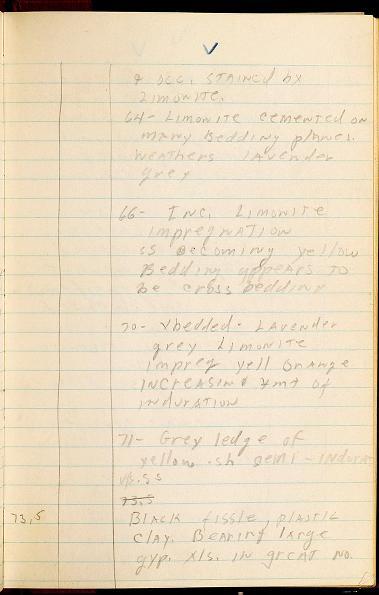 & occ. stained by
limonite.
64- Limonite cemented on
many bedding planes.
Weathers lavender
grey
66- Inc. Limonite
impregnation
ss becoming yellow
Bedding appears to
be cross bedding
70- Xbedded- Lavender
grey limonite
impreg yell orange
increasing amt of
induration
71- Grey ledge of
yellow-sh semi-indurat
ss
73,5
73,5 Black fissle, plastic
clay. Bearing large
gyp. xls. in great no.